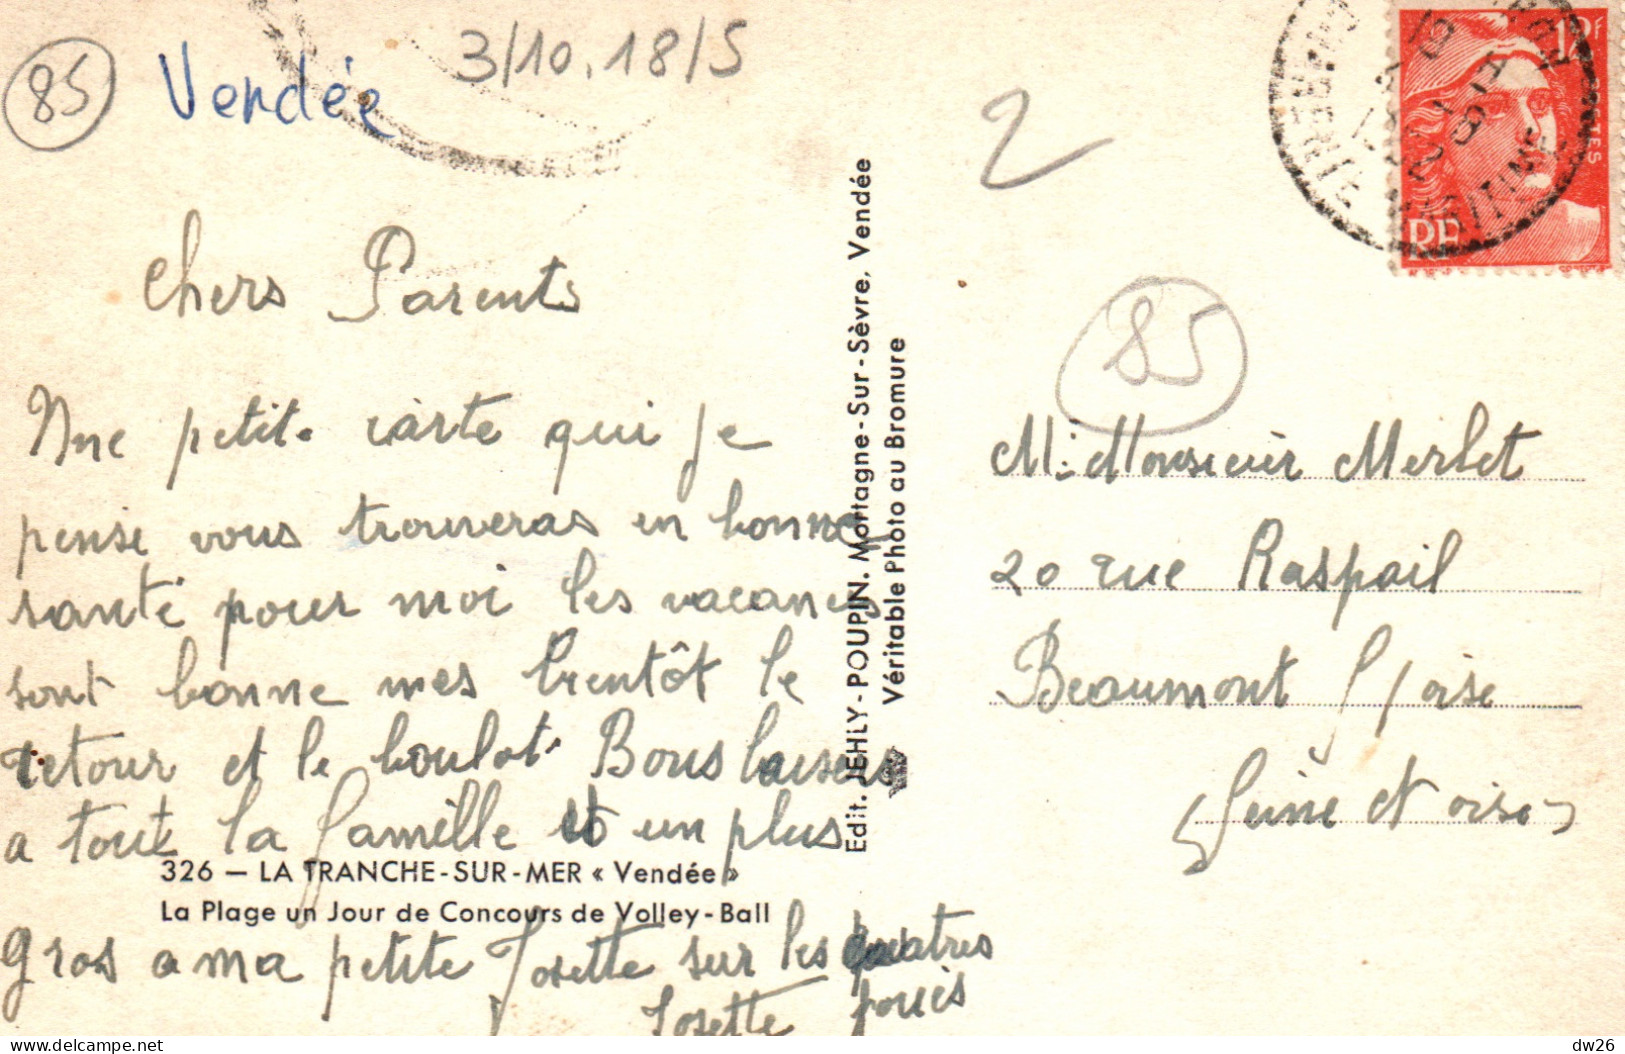 85
Vendée
3/10.18/5
2
12F
POSTES
RF
MARITIME
85
Chers Parents
Une petite carte qui je
pense vous trouveras en bonne
santé pour moi les vacances
sont bonne mes bientôt le
retour et le boulot Bons baisers
a toute la famille et un plus
326 — LA TRANCHE-SUR-MER « Vendée »
La Plage un Jour de Concours de Volley-Ball
gros a ma petite Josette sur les quatres
joues
Josette
Edit. JEHLY-POUPIN. Mortagne-Sur-Sèvre. Vendée
Véritable Photo au Bromure
M: Monsieur Merlet
20 rue Raspail
Beaumont s/oise
(Seine et oise)
dw26